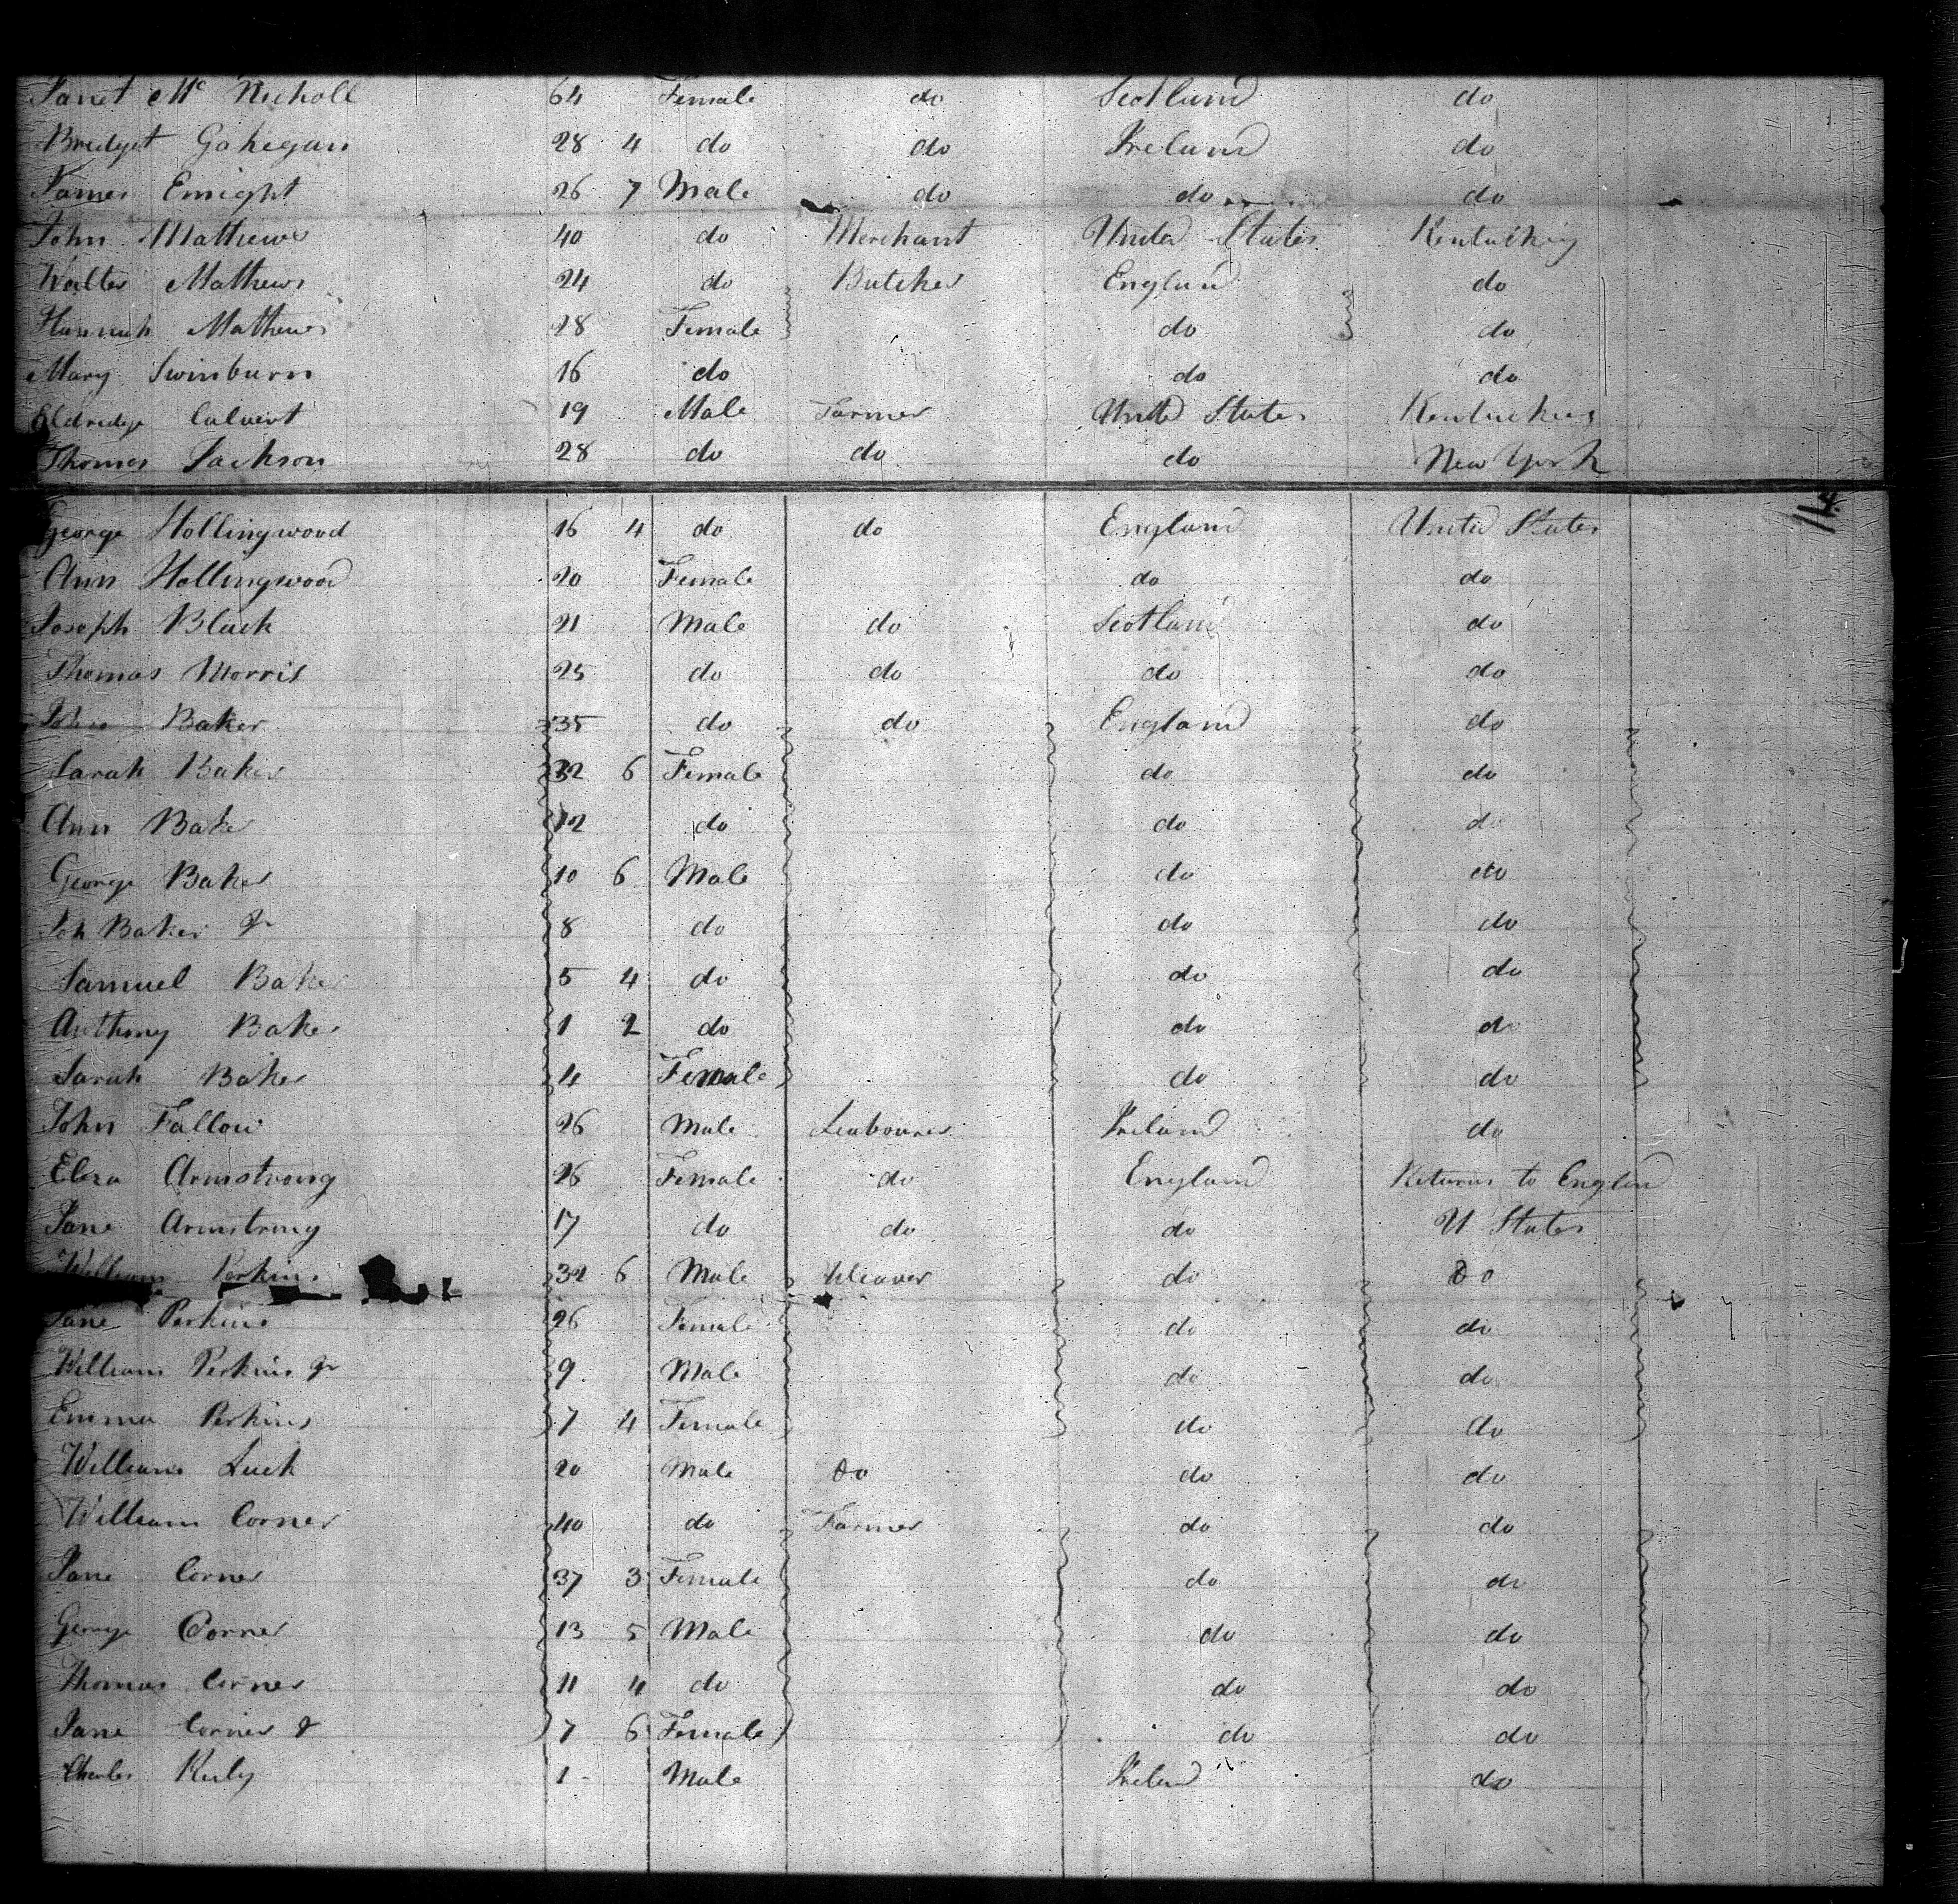 Janet Mc Nicholl 64 Female do Scotland do
Bridget Gahegan 28 4 do do Ireland do
James Enright 26 7 Male do do do
John Mathews 40 do Merchant United States Kentuckey
Walter Mathews 24 do Butcher England do
Hannah Mathews 28 Female do do
Mary Swinburn 16 do do do
Eldridge Calvert 19 Male Farmer United States Kentuckey
Thomas Jackson 28 do do do New York
14
George Hollingwood 16 4 do do England United States
Ann Hollingwood 20 Female do do
Joseph Black 21 Male do Scotland do
Thomas Morris 25 do do do do
John Baker 35 do do England do
Sarah Baker 32 6 Female do do
Ann Baker 12 do do do
George Baker 10 6 Male do do
Joh Baker Jr 8 do do do
Samuel Baker 5 4 do do do
Anthony Baker 1 2 do do do
Sarah Baker 4 Female do do
John Fallow 26 Male Leabourer Ireland do
Eliza Armstrong 26 Female do England Returns to England
Jane Armstrong 17 do do do U States
William Perkins 32 6 Male Weaver do Do
Jane Perkins 26 Female do do
William Perkins Jr 9 Male do do
Emma Perkins 7 4 Female do do
William Luck 20 Male Do do do
William Corner 40 do Farmer do do
Jane Corner 37 3 Female do do
George Corner 13 5 Male do do
Thomas Corner 11 4 do do do
Jane Corner Jr 7 6 Female do do
Charles 1 Male Ireland do